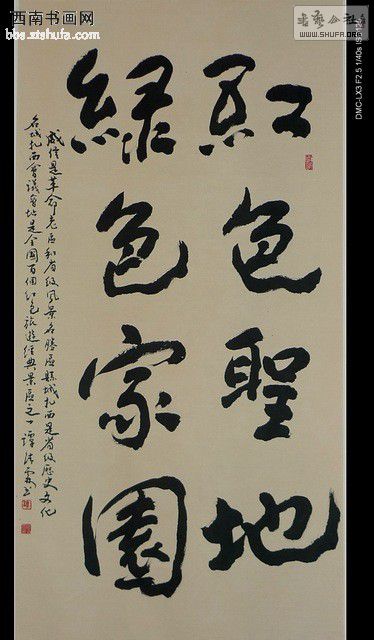 西南书画网
bbs.xishufa.com
书艺公社
WWW.SHUFA.ORG
DMC-LX3 F2.5 1/40s
紅色聖地
綠色家園
威信是革命老區和省級風景名勝區縣城扎西是省級歷史文化
名城扎西會議會址是全國百個紅色旅遊經典景區之一譚